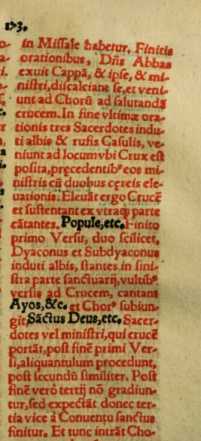 173.
in Missale habetur. Finitis
orationibus, Dñs Abbas
exuit Cappã, & ipse, & mi-
nistri, discalciant se, et veni-
unt ad Chorũ ad salutandã
crucem. In fine vltimæ ora-
tionis tres Sacerdotes indu-
ti albis & rufis Casulis, ve-
niunt ad locum vbi Crux est
posita, pręcedentibᵒ eos mi-
nistris cũ duobus cereis ele-
uationis. Eleuãt ergo Crucẽ
et sustentant ex vtraq; parte
cãtantes. Popule, etc. Finito
primo Versu, duo scilicet,
Dyaconus et Subdyaconus
induti albis, stantes in sini-
stra parte sanctuarij, vultibᵒ
versis ad Crucem, cantant
Ayos, &c. et Chorᵒ subiun-
git, Sãctus Deus, etc. Sacer-
dotes vel ministri, qui crucẽ
portãt, post finẽ primi Ver-
si, aliquantulum procedunt,
post secundũ similiter. Post
finẽ verò tertij nõ gradiun-
tur, sed expectãt donec ter-
tia vice à Conuentu sanctus
finitur. Et tunc intrãt Cho-